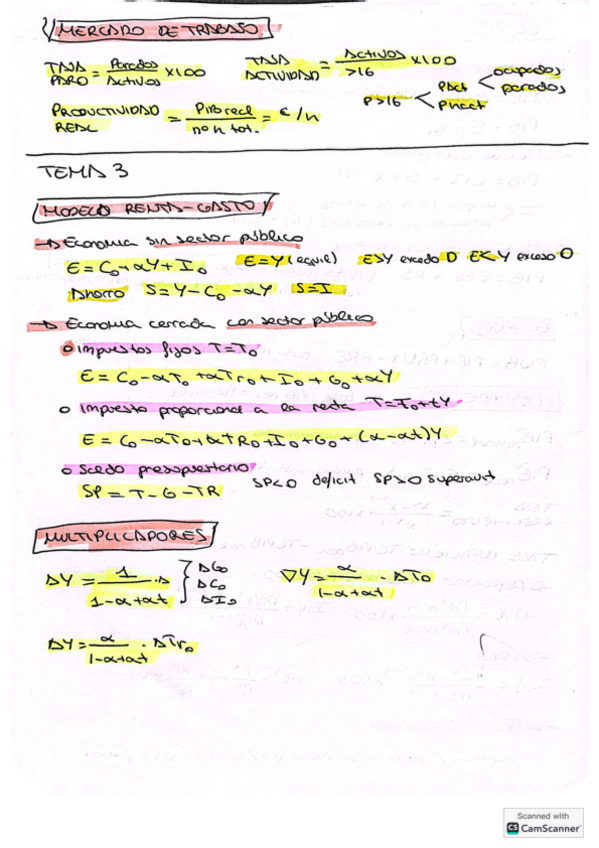 MERCADO DE TRABAJO
TASA PARO = Parados / Activos x100
TASA ACTIVIDAD = Activos / >16 x100
P>16 < Pact < ocupados parados
Pinact
PRODUCTIVIDAD REAL = PIB real / nº h tot. = € / h
TEMA 3
MODELO RENTA-GASTO
→ Economia sin sector público
E = C₀ + αY + I₀ E = Y (equil) E>Y excedo D E<Y exceso O
Ahorro S = Y - C₀ - αY S = I
→ Economia cerrada con sector público
o Impuestos fijos T = T₀
E = C₀ - αT₀ + αTr₀ + I₀ + G₀ + αY
o Impuesto proporcional a la renta T = T₀ + tY
E = C₀ - αT₀ + αTR₀ + I₀ + G₀ + (α - αt)Y
o Saldo presupuestario
SP = T - G - TR SP<0 deficit SP>0 superavit
MULTIPLICADORES
ΔY = 1 / 1-α+αt · Δ } ΔG₀ ΔC₀ ΔI₀
∇Y = α / 1-α+αt · ΔT₀
ΔY = α / 1-α+αt · ΔTr₀
Scanned with
CS CamScanner